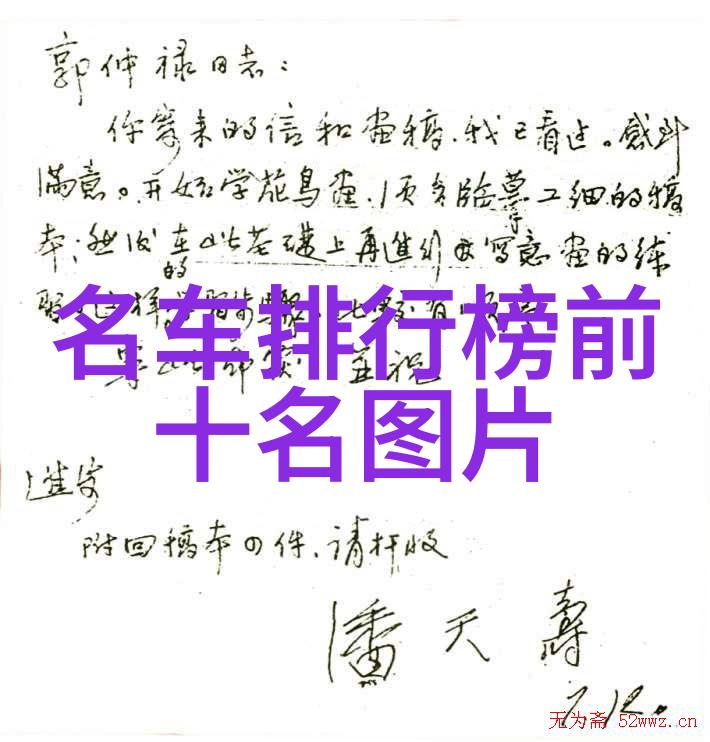 郭仲禄同志：
你寄来的信和画稿，我已看过。感到
满意。开始学花鸟画，须多临摹工细的稿
本；然后在此基础上再进行写意画的练
的
名车排行榜前
十名图片
进步
附回稿本四件、请检收
潘天寿
7.12.
无为斋 52wwz.cn